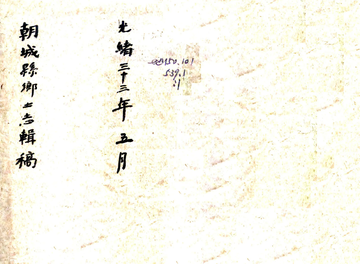 光緒三十三年五月
朝城縣鄉土志輯稿
539.1
:1